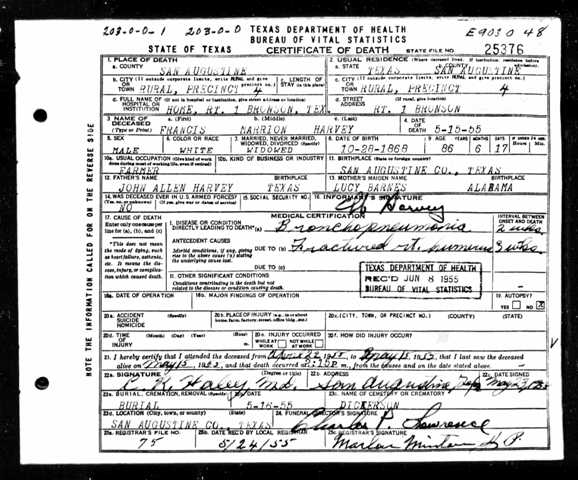 203-0-0-1 203-0-0 TEXAS DEPARTMENT OF HEALTH E903 0 48
BUREAU OF VITAL STATISTICS
STATE OF TEXAS CERTIFICATE OF DEATH STATE FILE NO. 25376
1. PLACE OF DEATH 2. USUAL RESIDENCE (Where deceased lived. If institution: residence before admission)
a. COUNTY SAN AUGUSTINE a. STATE TEXAS b. COUNTY SAN AUGUSTINE
b. CITY (If outside corporate limits, write RURAL and give precinct no.) c. LENGTH OF STAY (in this place) c. CITY (If outside corporate limits, write RURAL and give precinct no.)
OR TOWN RURAL, PRECINCT 4 OR TOWN RURAL, PRECINCT 4
d. FULL NAME OF (If not in hospital or institution, give street address or location) d. STREET (If rural, give location)
HOSPITAL OR INSTITUTION HOME, RT. 1 BRONSON, TEX. ADDRESS RT. 1 BRONSON
3. NAME OF DECEASED a. (First) b. (Middle) c. (Last) 4. DATE OF DEATH
(Type or Print) FRANCIS MARRION HARVEY 5-15-55
5. SEX 6. COLOR OR RACE 7. MARRIED, NEVER MARRIED, WIDOWED, DIVORCED (Specify) 8. DATE OF BIRTH
MALE WHITE WIDOWED 10-28-1868 86 6 17
10a. USUAL OCCUPATION (Give kind of work done during most of working life, even if retired) 10b. KIND OF BUSINESS OR INDUSTRY 11. BIRTHPLACE (State or foreign country)
FARMER SAN AUGUSTINE CO., TEXAS
12. FATHER'S NAME BIRTHPLACE 13. MOTHER'S MAIDEN NAME BIRTHPLACE
JOHN ALLEN HARVEY TEXAS LUCY BARNES ALABAMA
14. WAS DECEASED EVER IN U.S. ARMED FORCES? 15. SOCIAL SECURITY NO. 16. INFORMANT'S SIGNATURE
(Yes, no, or unknown) (If yes, give war or dates of service)
NO Harvey
17. CAUSE OF DEATH MEDICAL CERTIFICATION INTERVAL BETWEEN ONSET AND DEATH
Enter only one cause per line for (a), (b), and (c)
I. DISEASE OR CONDITION DIRECTLY LEADING TO DEATH* (a) Bronchopneumonia 2 wks
*This does not mean the mode of dying, such as heart failure, asthenia, etc. It means the disease, injury, or complication which caused death.
ANTECEDENT CAUSES
Morbid conditions, if any, giving rise to the above cause (a) stating the underlying cause last.
DUE TO (b) Fractured rt. humerus 3 wks.
DUE TO (c)
II. OTHER SIGNIFICANT CONDITIONS
Conditions contributing to the death but not related to the disease or condition causing death.
TEXAS DEPARTMENT OF HEALTH
REC'D JUN 8 1955
BUREAU OF VITAL STATISTICS
18a. DATE OF OPERATION 18b. MAJOR FINDINGS OF OPERATION 19. AUTOPSY?
YES NO
20a. ACCIDENT SUICIDE HOMICIDE (Specify) 20b. PLACE OF INJURY (e.g., in or about home, farm, factory, street, office bldg., etc.) 20c. (CITY, TOWN, OR PRECINCT NO.) (COUNTY) (STATE)
20d. TIME OF INJURY (Month) (Day) (Year) (Hour) 20e. INJURY OCCURRED 20f. HOW DID INJURY OCCUR?
WHILE AT WORK NOT WHILE AT WORK
21. I hereby certify that I attended the deceased from April 22 to May 15, 1955, that I last saw the deceased
alive on May and that death occurred at m., from the causes and on the date stated above.
22a. SIGNATURE (Degree or title) 22b. ADDRESS
C. K. Haley M.D. San Augustine, Texas
23a. BURIAL, CREMATION, REMOVAL (Specify) 23b. DATE 23c. NAME OF CEMETERY OR CREMATORY
BURIAL 5-16-55 DICKERSON
23d. LOCATION (City, town, or county) (State) 24. FUNERAL DIRECTOR'S SIGNATURE
SAN AUGUSTINE CO. TEXAS Charles P. Lawrence
25a. REGISTRAR'S FILE NO. 25b. DATE REC'D BY LOCAL REGISTRAR
75 5/24/55
NOTE THE INFORMATION CALLED FOR ON THE REVERSE SIDE